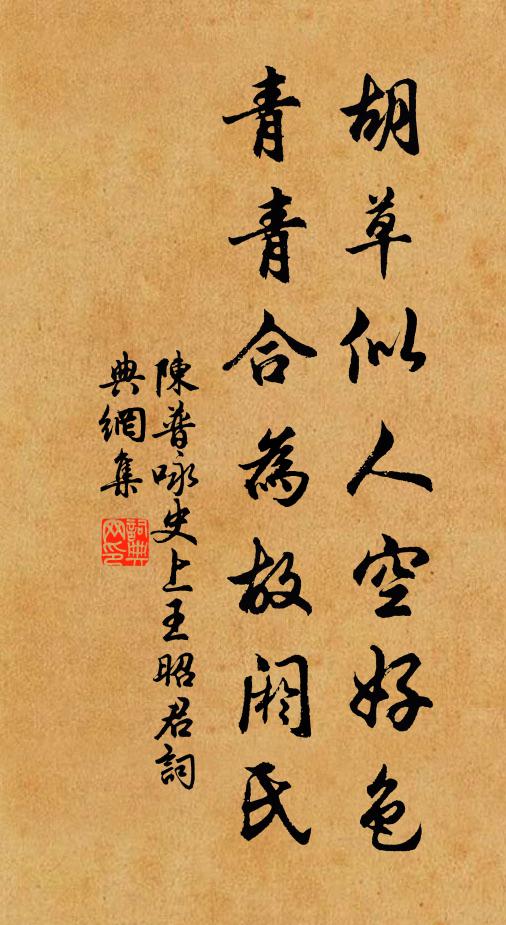 胡草似人空好色
青青合為故閼氏
陳普咏史上王昭君詞
典網集
詞典网印